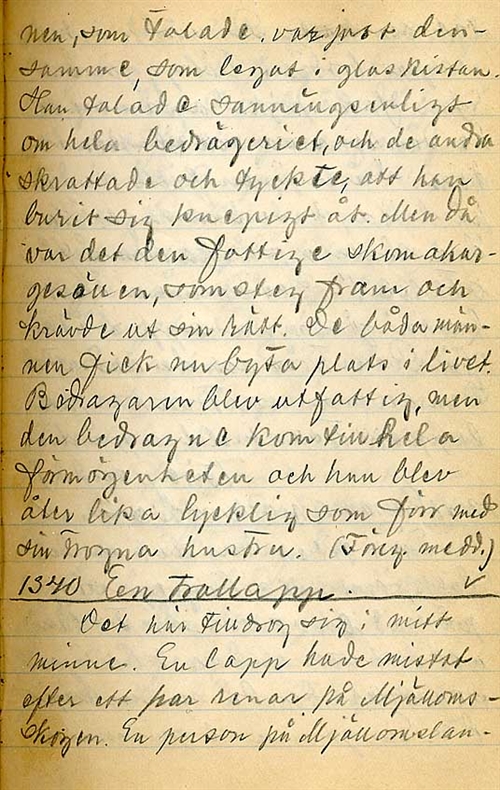 nen, som talade, var just den-
samme, som legat i glaskistan.
Han talade sanningsenligt
om hela bedrägeriet, och de andra
skrattade och tyckte, att han
burit sig knepigt åt. Men då
var det den fattige skomakar-
gesällen, som steg fram och
krävde ut sin rätt. De båda män-
nen fick nu byta plats i livet.
Bedragaren blev utfattig, men
den bedragne kom till hela
förmögenheten och han blev
åter lika lycklig som förr med
sin trogna hustru. (Föreg. medd.)
1340 En trollapp. ✓
Det här tilldrog sig i mitt
minne. En lapp hade mistat
efter ett par renar på Mjälloms-
skogen. En person på Mjällomslan-